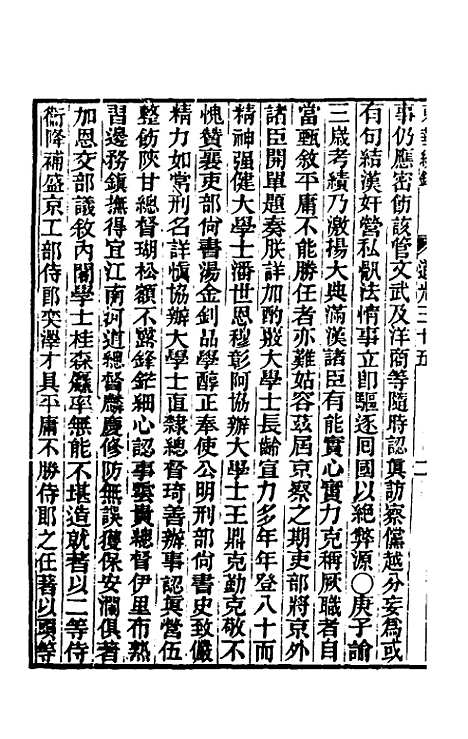 東華續錄 道光三十五 二
事仍應密飭該管文武及洋商等隨時認眞訪察儻越分妄爲或
有句結漢奸營私骫法情事立卽驅逐囘國以絶弊源○庚子諭
三歲考績乃激揚大典滿漢諸臣有能實心實力克稱厥職者自
當甄敘平庸不能勝任者亦難姑容茲屆京察之期吏部將京外
諸臣開單題奏朕詳加酌覈大學士長齡宣力多年年登八十而
精神强健大學士潘世恩穆彰阿協辦大學士王鼎克勤克敬不
愧贊襄吏部尙書湯金釗品學醇正奉使公明刑部尙書史致儼
精力如常刑名詳愼協辦大學士直隸總督琦善辦事認眞營伍
整飭陝甘總督瑚松額不露鋒鋩細心認事雲貴總督伊里布熟
習邊務鎭撫得宜江南河道總督麟慶修防無誤獲保安瀾俱著
加恩交部議敘內閣學士桂森羸率無能不堪造就著以二等侍
衞降補盛京工部侍郎奕澤才具平庸不勝侍郎之任著以頭等